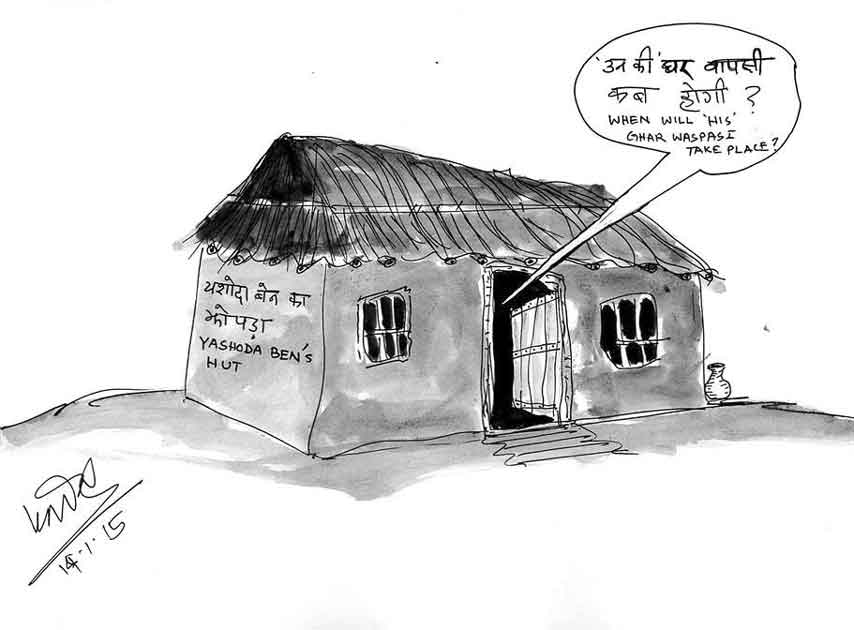 'उन की' घर वापसी
कब होगी ?
WHEN WILL 'HIS'
GHAR WASPASI
TAKE PLACE?
यशोदा बेन का
झोपड़ा
YASHODA BEN'S
HUT
14.1.15